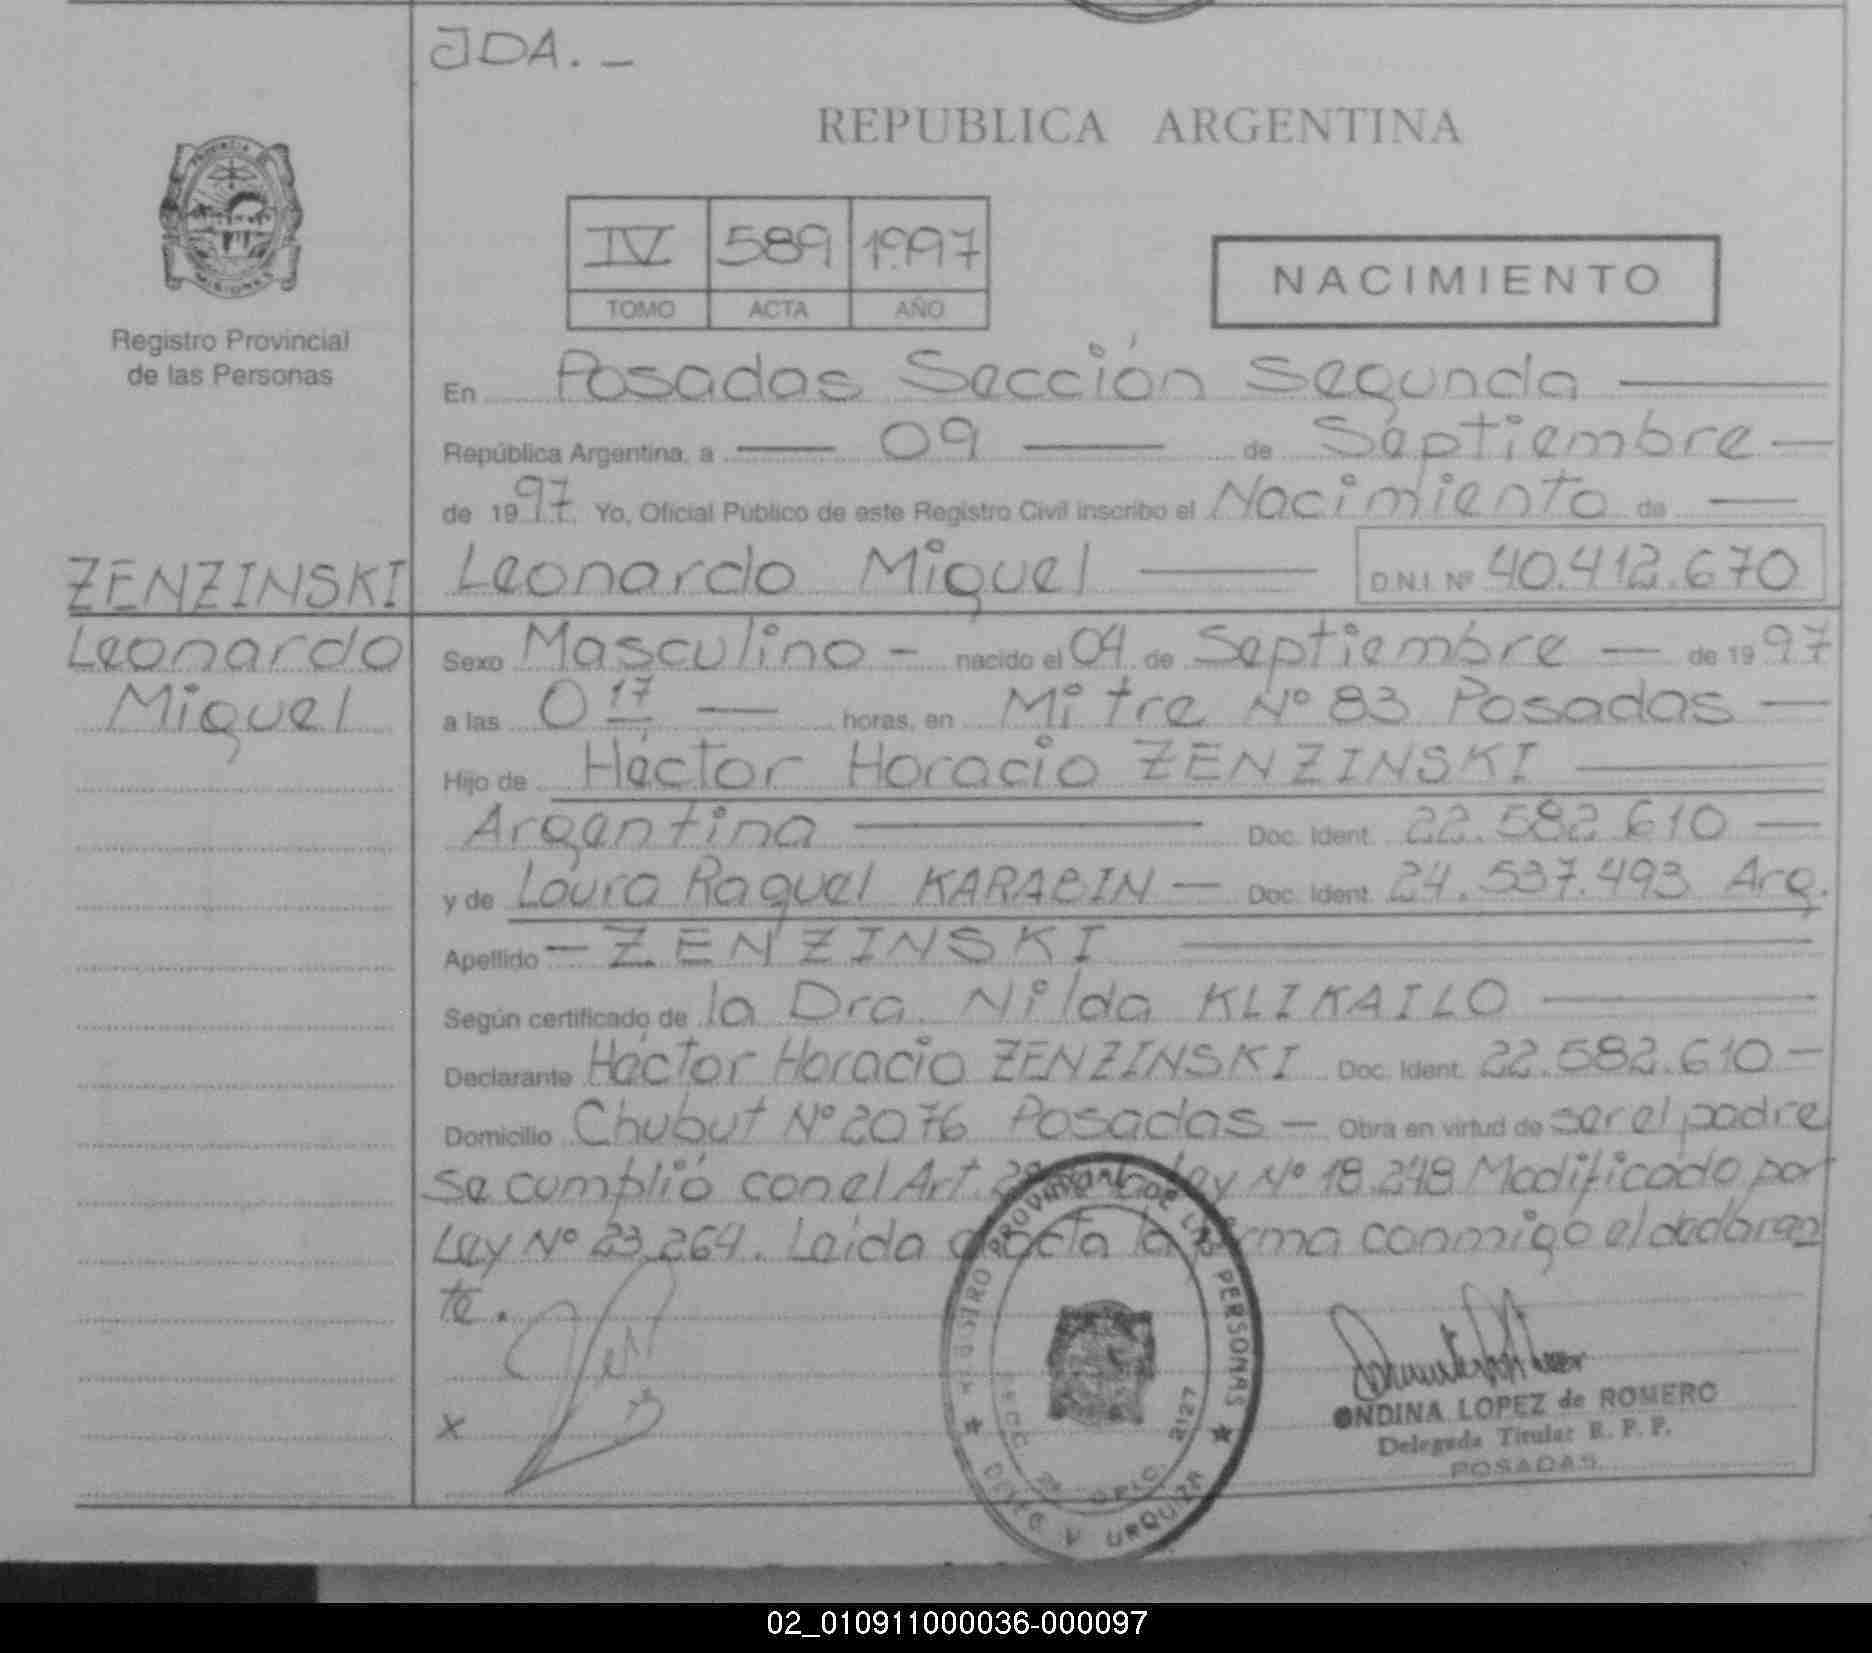 JDA. _
REPUBLICA ARGENTINA
PROVINCIA
MISIONES
Registro Provincial
de las Personas
IV 589 1997
TOMO ACTA AÑO
NACIMIENTO
En Posadas Sección Segunda
República Argentina, a 09 de Septiembre
de 1997. Yo, Oficial Público de este Registro Civil inscribo el Nacimiento de
ZENZINSKI
Leonardo
Miguel
Leonardo Miguel D.N.I. Nº 40.412.670
Sexo Masculino - nacido el 04 de Septiembre de 1997
a las 0 17 horas, en Mitre Nº 83 Posadas
Hijo de Héctor Horacio ZENZINSKI
Argentina Doc. Ident. 22.582.610
y de Laura Raquel KARABIN Doc. Ident. 24.537.493 Arg.
Apellido ZENZINSKI
Según certificado de la Dra. Nilda KLIKAILO
Declarante Héctor Horacio ZENZINSKI Doc. Ident. 22.582.610
Domicilio Chubut Nº 2076 Posadas - Obra en virtud de ser el padre
se cumplió con el Art. Ley Nº 18.248 Modificado por
Ley Nº 23.264. Leída acta la firma conmigo el declaran
te.
x
REGISTRO PROVINCIAL DE LAS PERSONAS
SECC. 2a OFIC. 2127
URQUIZA
ONDINA LOPEZ de ROMERO
Delegada Titular R. P. P.
POSADAS
02_010911000036-000097